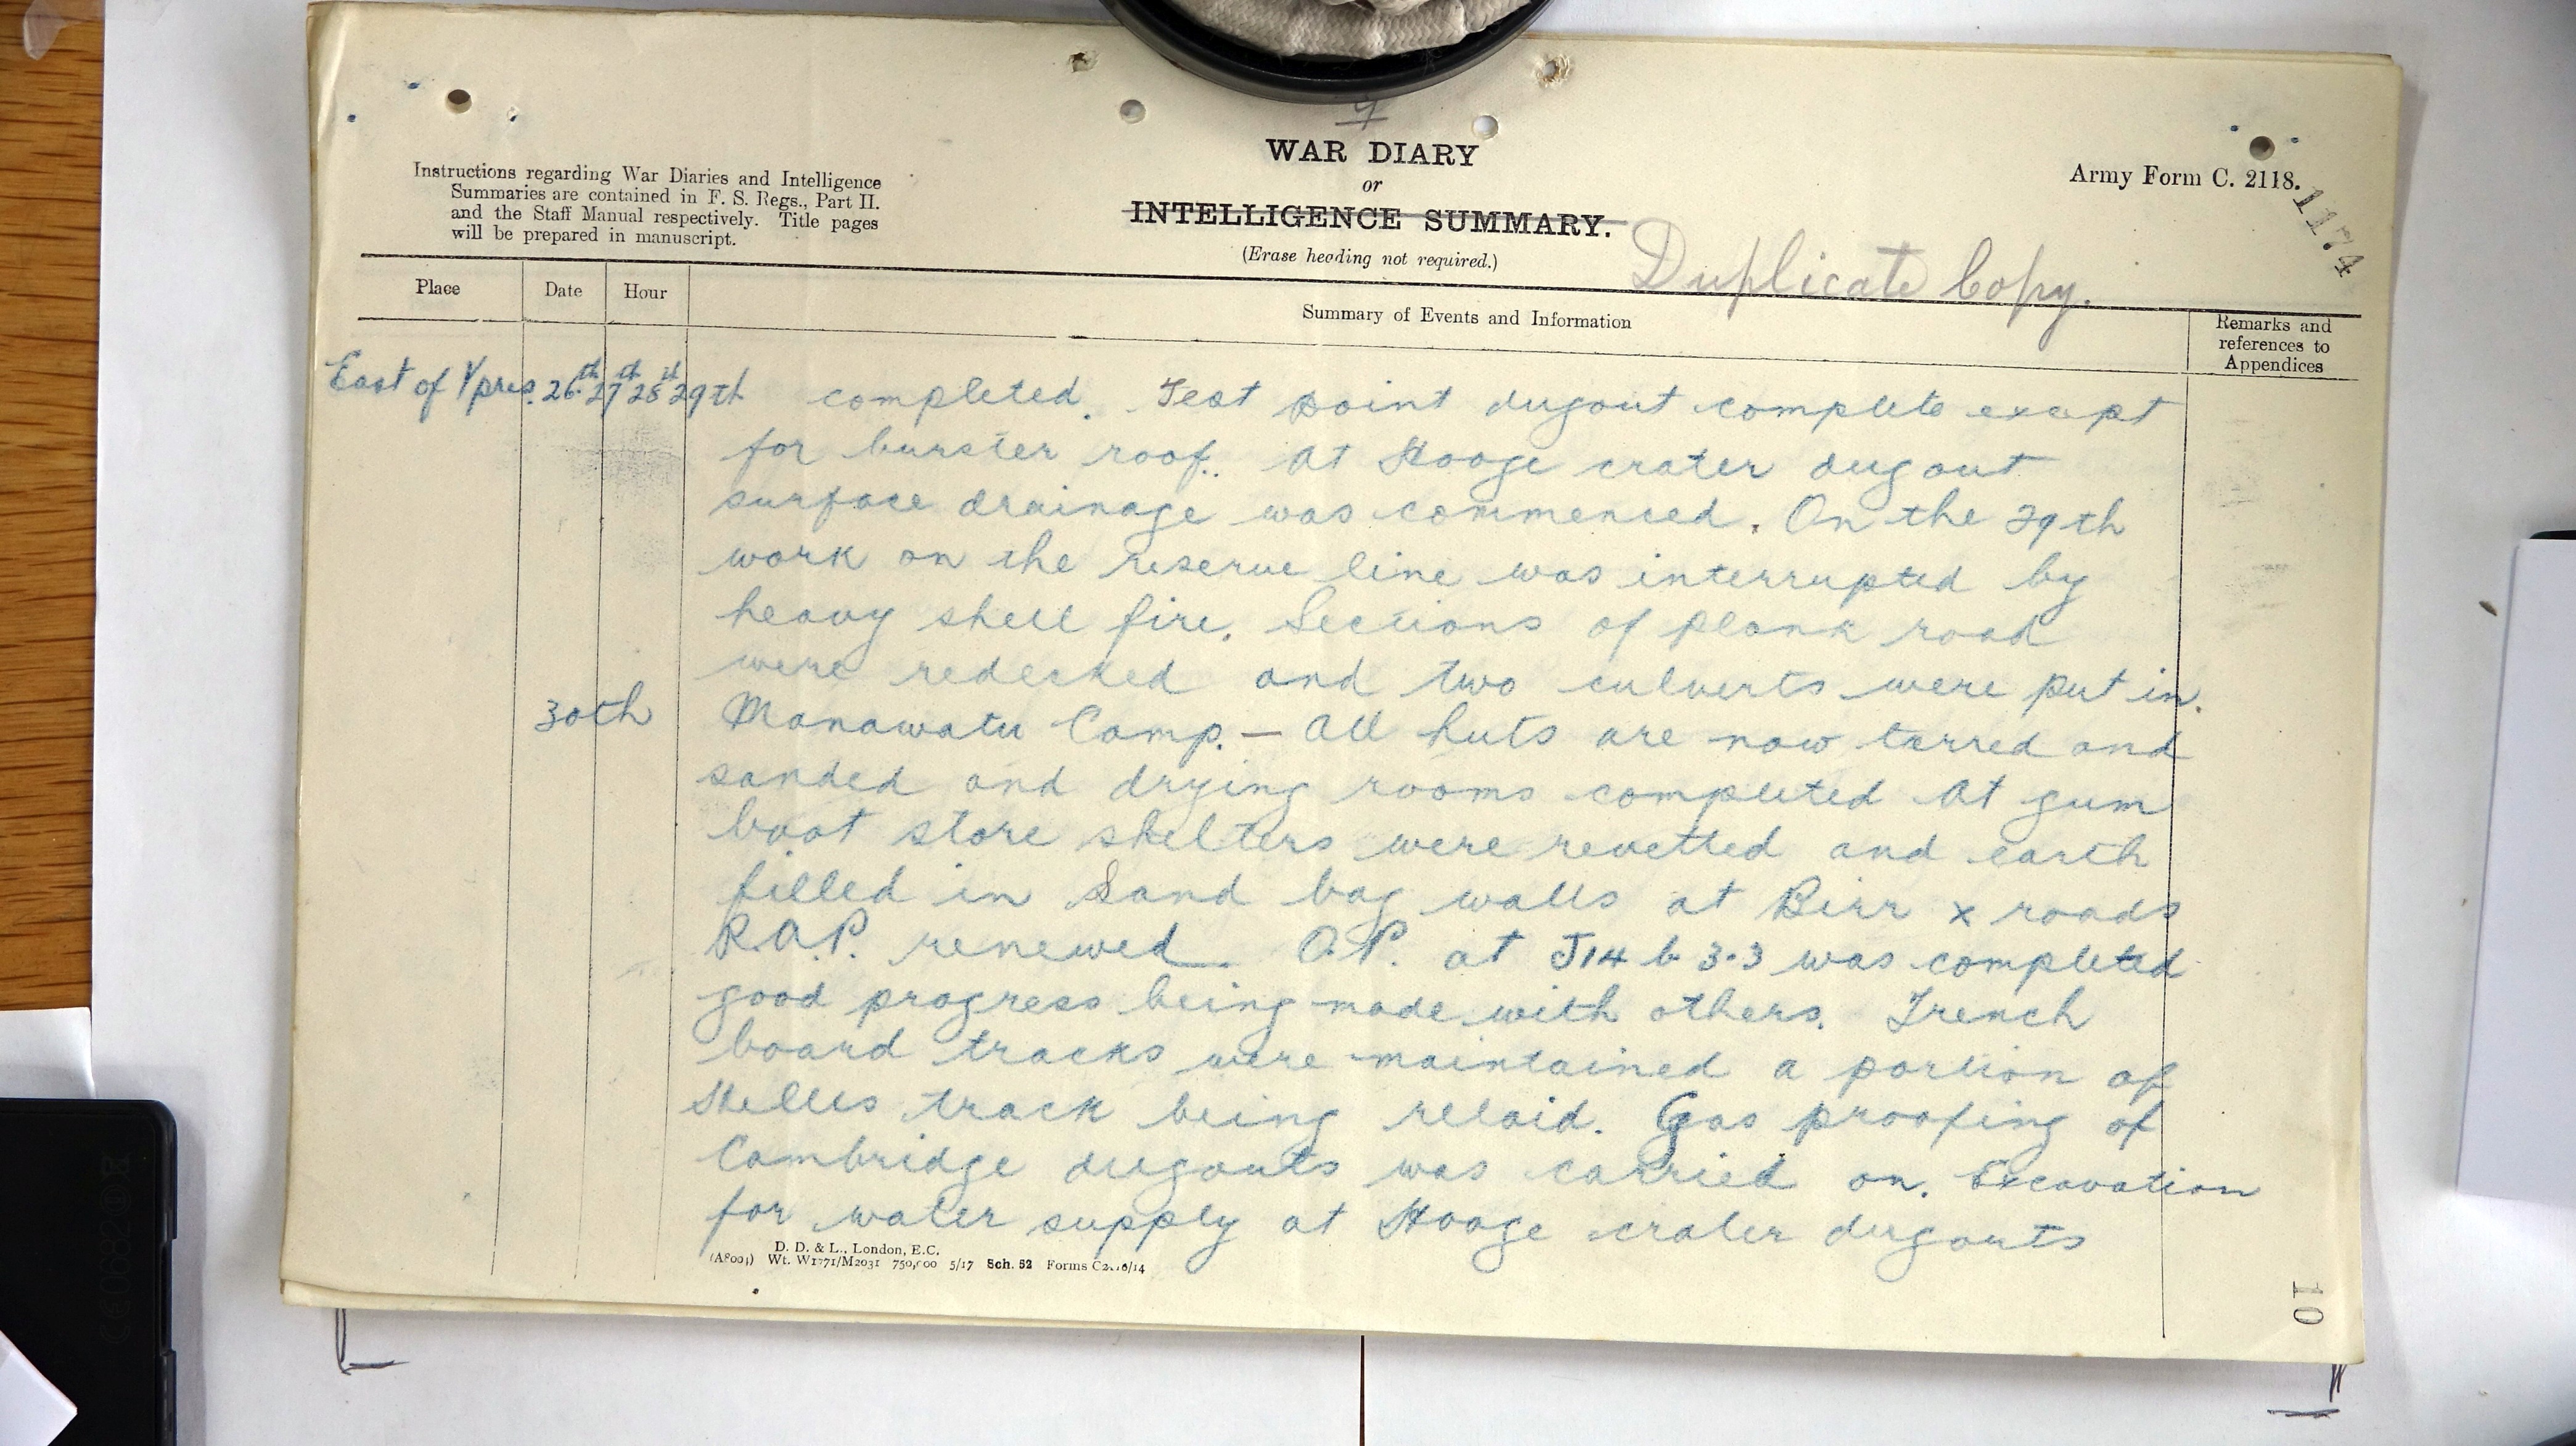 9
WAR DIARY
or
INTELLIGENCE SUMMARY.
(Erase heading not required.)
Instructions regarding War Diaries and Intelligence
Summaries are contained in F. S. Regs., Part II.
and the Staff Manual respectively. Title pages
will be prepared in manuscript.
Army Form C. 2118.
1174
Duplicate Copy.
Place Date Hour Summary of Events and Information Remarks and references to Appendices
East of Ypres. 26th 27th 28th 29th completed. Test point dugout complete except
for burster roof. At Hooge crater dugout
surface drainage was commenced. On the 29th
work on the reserve line was interrupted by
heavy shell fire. Sections of plank road
were redecked and two culverts were put in.
30th Manawatu Camp. — All huts are now tarred and
sanded and drying rooms completed At gum
boot store shelters were revetted and earth
filled in Sand bag walls at Birr x roads
R.A.P. renewed. O.P. at J14 b 3.3 was completed
good progress being made with others. Trench
board tracks were maintained a portion of
track being relaid. Gas proofing of
Cambridge dugouts was carried on. Excavation
for water supply at Hooge crater dugouts
D. D. & L., London, E.C.
Wt. W1771/M2031 750,000 5/17 Sch. 52 Forms
10